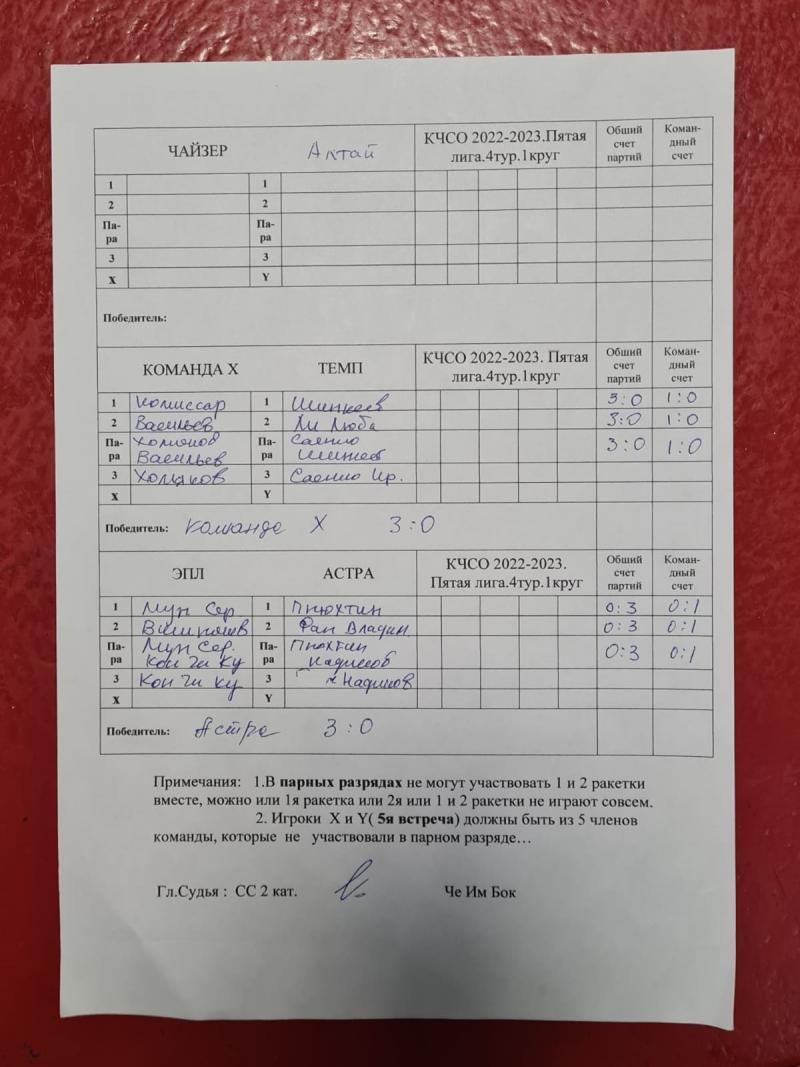 ЧАЙЗЕР Алтай КЧСО 2022-2023.Пятая лига.4тур.1круг Общий счет партий Коман-дный счет
1 1
2 2
Па-ра Па-ра
3 3
X Y
Победитель:
КОМАНДА X ТЕМП КЧСО 2022-2023. Пятая лига.4тур.1круг Общий счет партий Коман-дный счет
1 Комиссар 1 3:0 1:0
2 Васильев 2 Ли Люба 3:0 1:0
Па-ра Васильев Па-ра Саенко 3:0 1:0
3 Хомяков 3 Саенко Ир.
X Y
Победитель: Команда X 3:0
ЭПЛ АСТРА КЧСО 2022-2023. Пятая лига.4тур.1круг Общий счет партий Коман-дный счет
1 Мун Сер 1 Пнюхтин 0:3 0:1
2 2 Фан Владим. 0:3 0:1
Па-ра Мун Сер. Кон Чи Ку Па-ра Пнюхтин 0:3 0:1
3 Кон Чи Ку 3
X Y
Победитель: Астра 3:0
Примечания: 1.В парных разрядах не могут участвовать 1 и 2 ракетки
вместе, можно или 1я ракетка или 2я или 1 и 2 ракетки не играют совсем.
2. Игроки X и Y( 5я встреча) должны быть из 5 членов
команды, которые не участвовали в парном разряде…
Гл.Судья : СС 2 кат. Че Им Бок